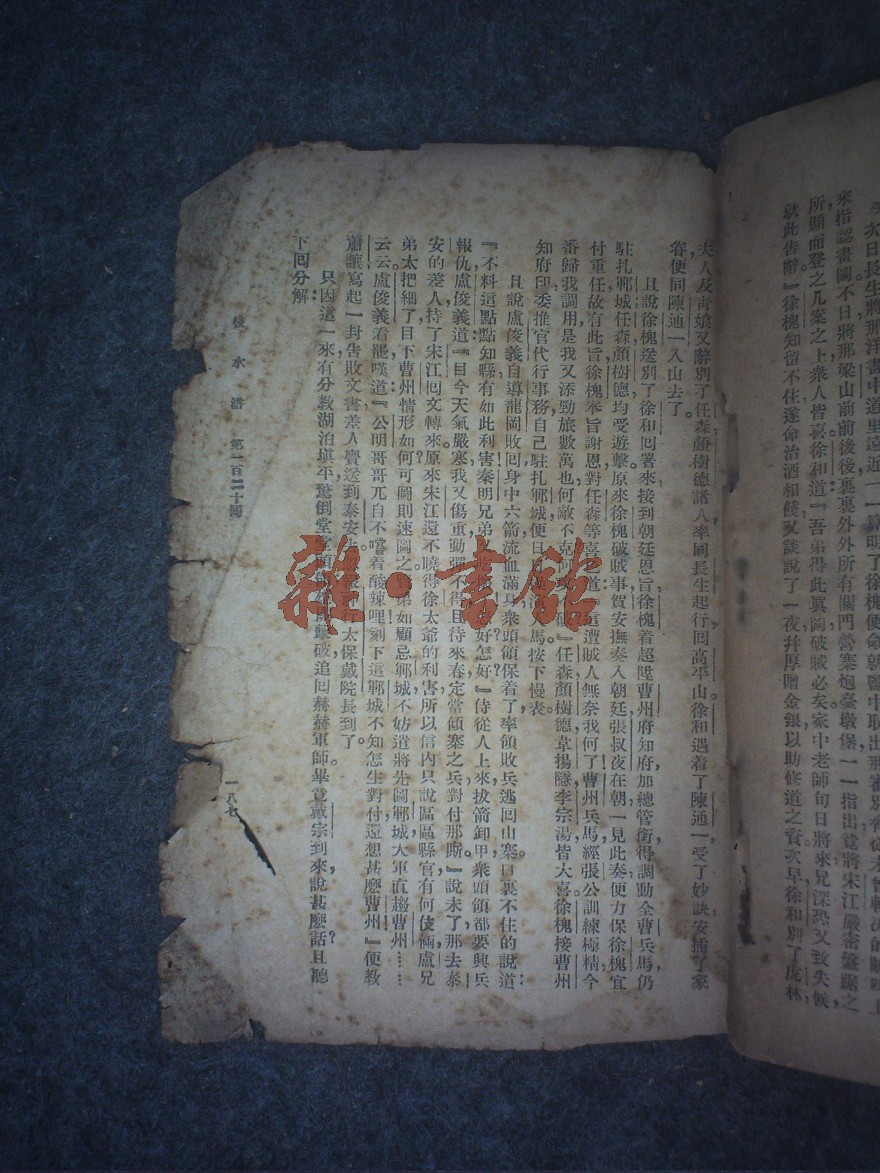 次日長生將那洋畫中道里遠近一一算明了徐槐便命
來指認畫圖不日將那梁山前前後後裏裏外外所有關門營寨炮臺墩堡一一指出竟將宋江嚴密盤踞之
所顯而登之几案之上衆人皆喜徐和道『吾弟得此眞圖破賊必矣家中老師旬日將來兄深恐又致失候
就此告辭』徐槐知留不住遂命治酒相餞又談說了一夜幷厚贈金銀以助修道之資次早徐和別了虎林
夫人及靑娘又辭別了任森顏樹德諸人率同長生起行回高平山徐和遇着了陳通一受了妙訣安插了家
眷便同陳通一入山去了。
且說徐槐送別了徐和回署來接到朝廷恩旨徐槐着超陞曹州府知府加總管銜得調動全曹兵馬仍
駐扎鄆城任森顏樹德均受遊擊原來徐槐破賊事賀安撫奏入朝廷張叔夜在朝一見此奏便力保徐槐宜
付重任故有此旨徐槐奉旨謝恩對任森等喜道『這遭賊人無奈我何了曹州兵馬經張公訓練極精今
番歸我調用是我又添勁旅數萬也何敵不克何
破』任森顏樹德韋揚隱李宗湯皆大喜徐槐接曹州
知府印委推官代行事務自己駐扎鄆城便日
馬按下慢表。
且說盧俊義自導龍岡敗回身中六箭流血滿身衆頭領保着了率領敗兵逃回山寨口裏不住的說道
『不料這點點知縣有如此利害秦明兄弟
好怎好』侍從人上來拔箭卸甲衆頭領都要興兵
報仇盧俊義道『目今天氣嚴寒我又傷重動彈不得且待來春定當領寨之兵對付那廝』說未了那去泰
安的差人持了宋江回文轉來原來宋江還不曉得徐太爺的利害所以信內只說區區縣官有何伎倆盧兄
弟太把細了目下曹州情形如何可圖則速圖之
弟如顧忌鄆城不妨遣將先圖鄆城大軍直趨曹州……
云云盧俊義看罷嘆道『公明哥哥兀自不嚐着酸辣哩刻下這鄆城不知怎生對付還想甚麼曹州』便教
蕭讓寫起一封告敗文書差人賫送到泰安去
太保戴院長到了。
只因這一來有分教湖泊塡平驚倒堂堂頭領
擊破追回赫赫軍師畢竟戴宗到來說甚麼話且聽
下回分解
水滸 第一百二十回
一八七
雜·書館